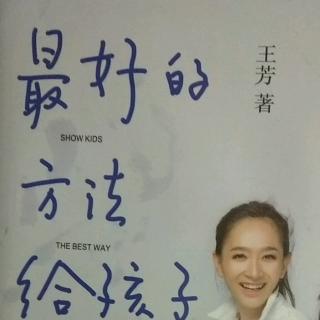 最好的
SHOW KIDS
方法
THE BEST WAY
给孩子
王芳 著